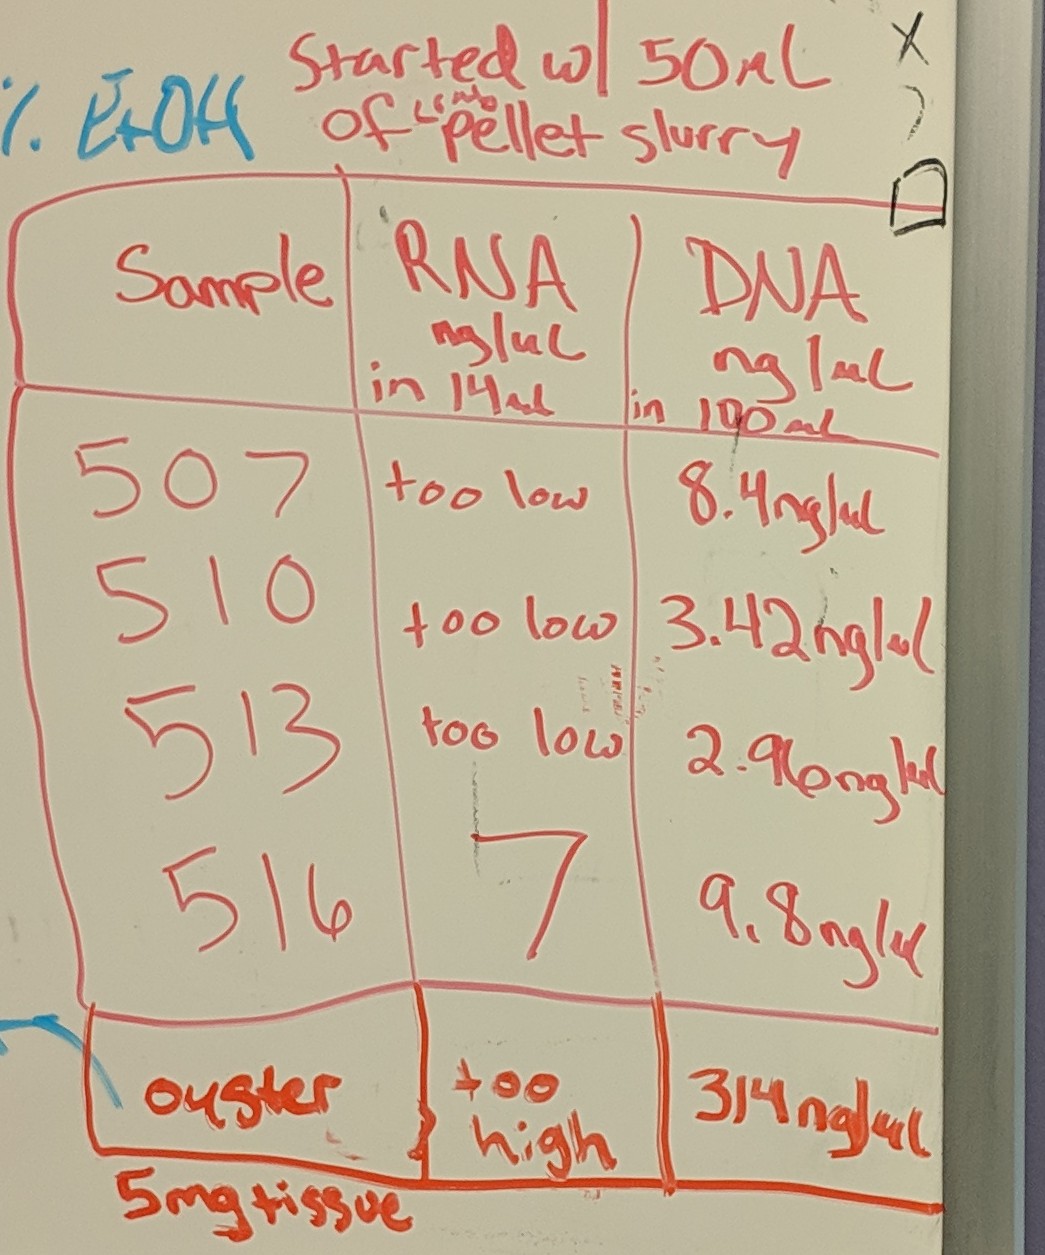 Started w/ 50uL
% EtOH
of "limb" pellet slurry
Sample RNA DNA
ng/uL ng/uL
in 14uL in 100uL
507 too low 8.4ng/uL
510 too low 3.42ng/uL
513 too low 2.96ng/uL
516 7 9.8ng/uL
oyster too high 314ng/uL
5mg tissue